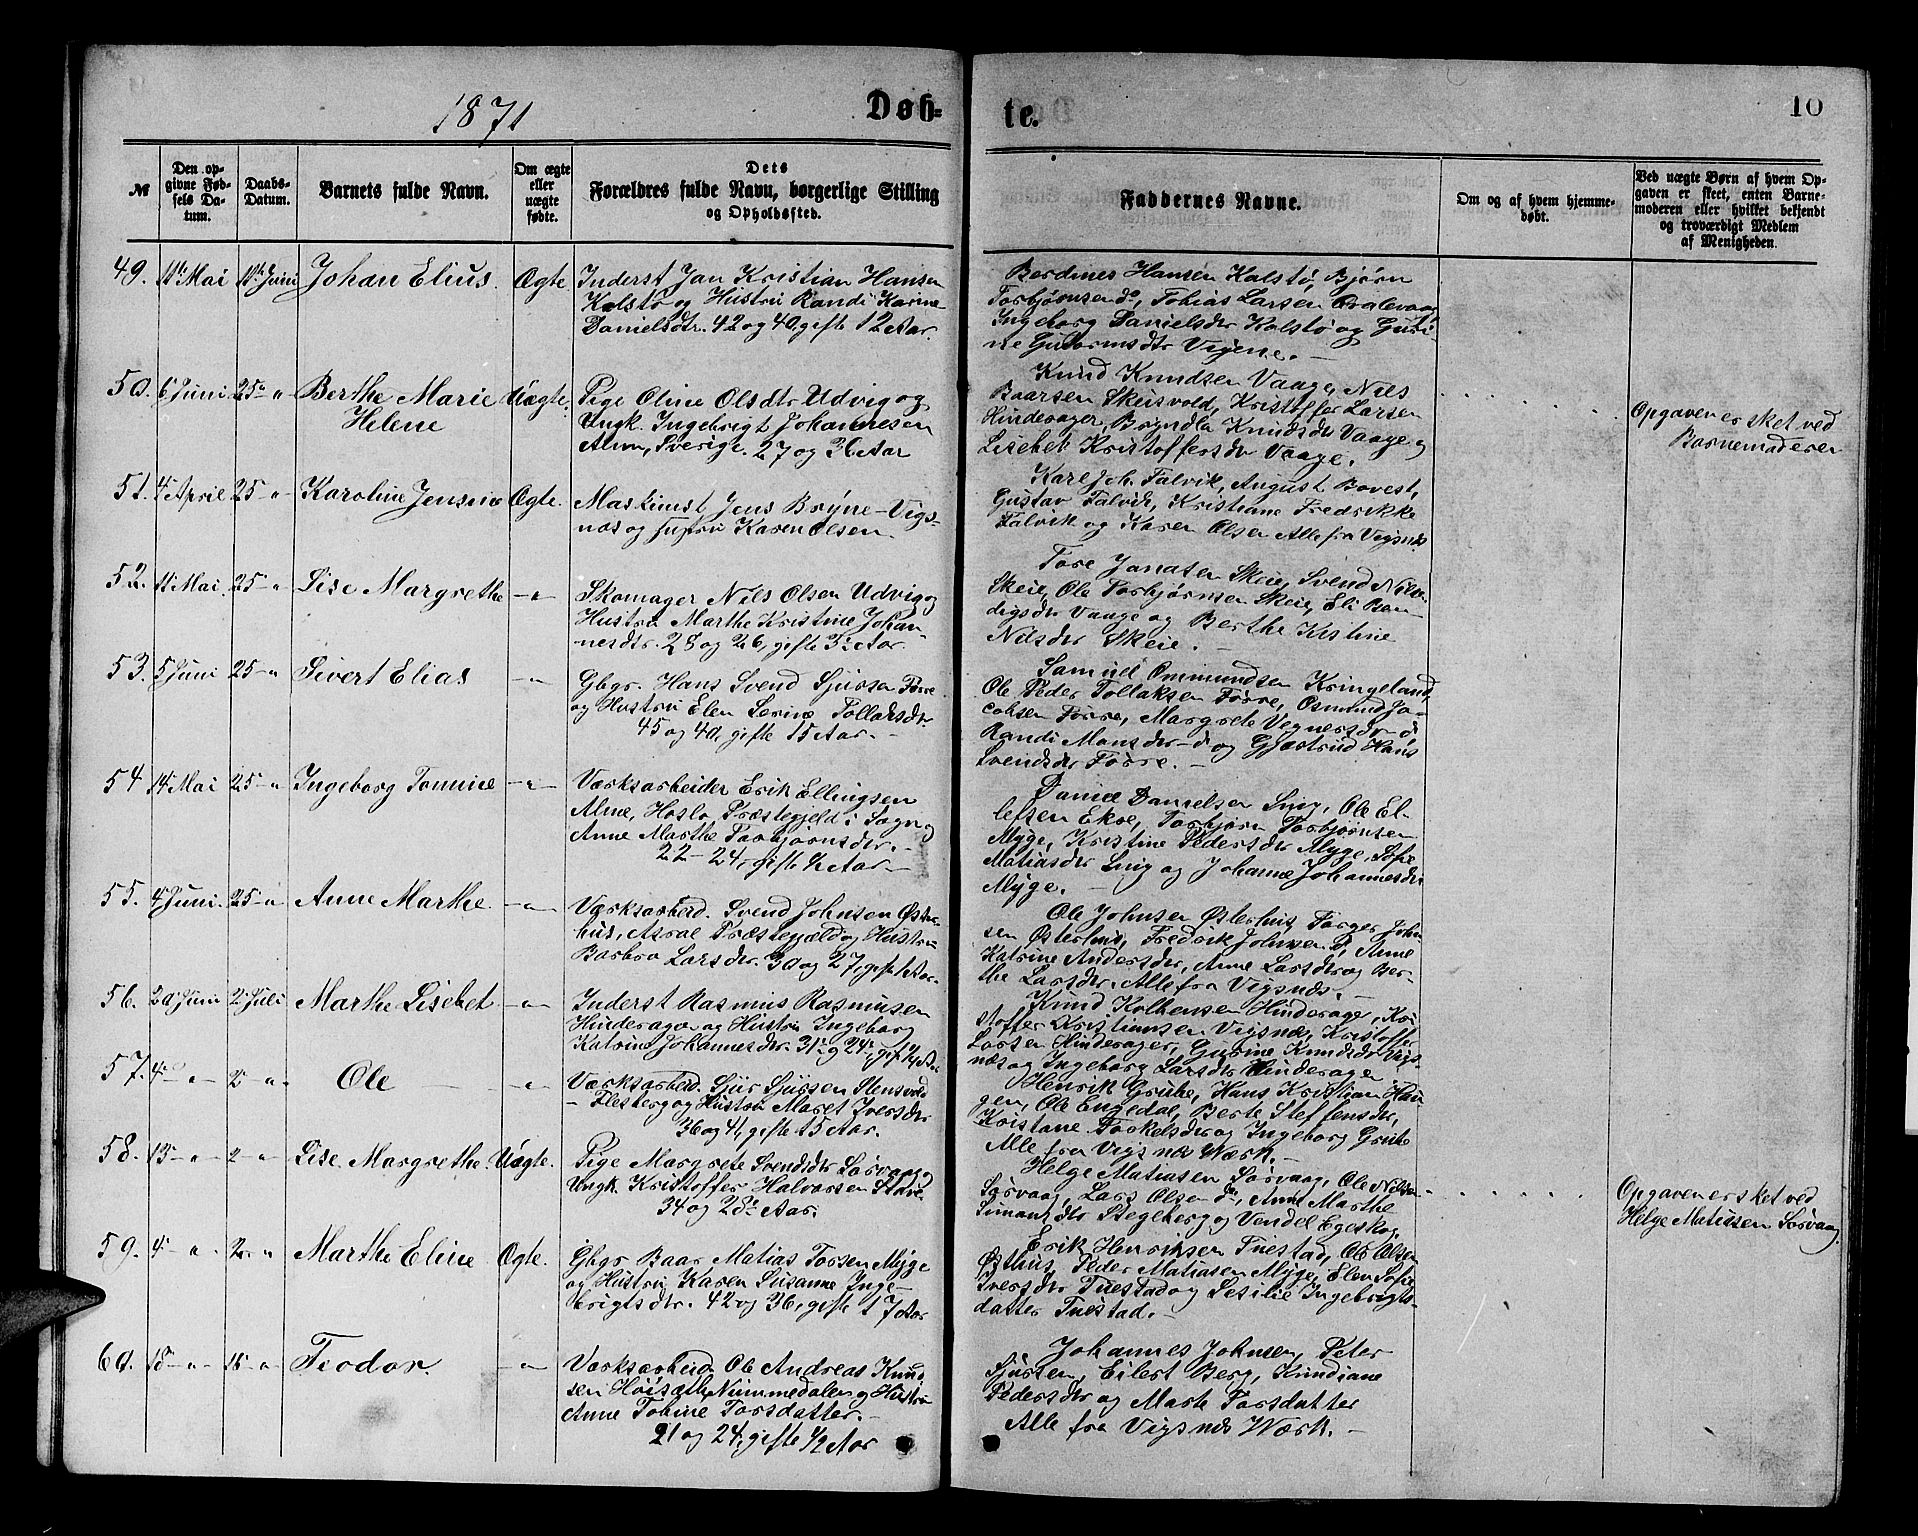 1871
Døb-
te.
10
№
Den op-
givne Fød-
sels Da-
tum.
Daabs-
Datum.
Barnets fulde Navn.
Om ægte
eller
uægte
fødte.
Dets
Forældres fulde Navn, borgerlige Stilling
og Opholdssted.
Faddernes Navne.
Om og af hvem hjemme-
døbt.
Ved uægte Børn af hvem Op-
gaven er skeet, enten Barne-
moderen eller hvilket bekjendt
og troværdigt Medlem
af Menigheden.
49. Mai Juni Johan Elius. Ægte
Inderst Jan Kristian Hansen
Kalstø og Hustru Randi Karine
Danielsdtr. 42 og 40. gifte 12 Aar.
Berdines Hansen Kalstø, Bjørn
Torbjørnsen do, Tobias Larsen
Ingeborg Danielsdtr Kalstø og Guri-
ne Gudormsdtr
50. 6 Juni 25 " Berthe Marie
Helene
Uægte.
Pige Oline Olsdtr Udvig og
Ungk. Ingebrigt Johannesen
Sverige. 27 og 36 Aar
Knud Knudsen Vaage, Nils
Baarsen Skeisvold, Kristoffer Larsen
Hinderager, Knudsdtr Vaage og
Lisebet Kristoffersdtr Vaage.
Opgaven er sket ved
Barnemoderen
51. 4 April 25 " Karoline Jensine Ægte.
Maskinist Jens Bryne - Vigs-
næs og Hustru Karen Olsen.
Karl Joh. Falvik, August Bovest,
Gustav Falvik, Kristiane Fredrikke
Falvik og Karen Olsen Alle fra Vigsnæs
52. 11 Mai 25 " Lise Margrethe - " -
Skomager Nils Olsen Udvig og
Hustru Marthe Kristine Johan-
nesdtr. 28 og 26, gifte 3 Aar.
Tore Skeie, Svend
Skeie, Ole Torbjørnsen Skeie, Eli Baar-
digsdtr Vaage og Berthe Kistine
Nilsdtr Skeie.
53. 5 Juni 25 " Sivert Elias - "
Gbgr. Hans Svend Sjursen Førre
og Hustru Elen Serine Tollaksdtr
45 og 40, gifte 15 Aar.
Samuel Ommundsen Kringeland,
Ole Peder Tollaksen Førre, Osmund Ja-
cobsen Førre, Margrete
Randi Monsdtr og Hans
Svendsdtr Førre.
54 14 Mai 25 " Ingeborg Tomine - " -
Værksarbeider Erik Ellingsen
Præstegjeld i Sogn og
Anne Marthe Torbjørnsdtr.
22 - 24, gifte 1/2 Aar.
Daniel Danielsen Ole El-
lefsen Ekoe, Torbjørn Torbjørnsen
Myge, Kristine Pedersdtr Myge, Sofie
Matiasdtr og Johanne Johannesdtr
Myge.
55. 4 Juni. 25 " Anne Marthe. - " -
Værksarbeid. Svend Johnsen Øster-
hus, Præstegjæld og Hustru
Barbro Larsdtr. 30 og 27, gifte 1 Aar.
Ole Johnsen Østerhus, Torger John-
sen Østerhus, Fredrik Johnsen do, Anne
Katrine Andersdtr, Anne Larsdtr og Ber-
the Larsdtr. Alle fra Vigsnæs.
56. 20 Juni 2 Juli Marthe Lisebet - " -
Inderst Rasmus Rasmusen
Hinderager og Hustru Ingeborg
Katrine Johannesdtr. 31 og 24,
Knud Hinderager, Kri-
stoffer Kristiansen Vigsnæs, Kristoffer
Larsen Hinderager, Gurine Knudsdtr Vigs-
næs og Ingeborg Larsdtr Hinderager
57. 4 - " - 2 - " - Ole - " -
Værksarbeid. Sjur Sjursen Stensvold
- Flesberg og Hustru Maret Iversdtr
36 og 41, gifte 15 Aar.
Henrik Grube, Hans Kristian Hau-
gen, Ole Engedal, Berte Steffensdtr,
Kristane Torkelsdtr og Ingeborg Grube
Alle fra Vigsnæs Værk.
58. 13 - " - 2 - " Lise Margrethe. Uægte.
Pige Margrete Svendsdtr Sørvaag og
Ungk. Kristoffer Halvorsen
34 og 28 Aar.
Helge Matiasen Sørvaag, Ole Nilsen
Sørvaag, Lars Olsen do, Anne Marthe
Simonsdtr Stegeberg og Vendel Egeskog.
Opgaven er sket ved
Helge Matiasen Sørvaag
59. 4 - " - 2 - " Marthe Eline Ægte.
Gbgr Baar Matias Torsen Myge
og Hustru Karen Susanne Inge-
brigtsdtr. 42 og 36, gifte 17 Aar
Erik Henriksen Tuestad, Ole Olsen
Østhus, Peder Matiasen Myge, Elen Sofie
Iversdtr Tuestad og Sesilie Ingebrigts-
datter Tuestad.
60. 18 - " - 16 - " Teodor. - " -
Værksarbeid. Ole Andreas Knud-
sen Nummedalen og Hustru
Anne Tobine Torsdatter.
21 og 24, gifte 1/2 Aar
Johannes Johnsen, Peter
Sjursen, Eilert Berg, Knudiane
Pedersdtr og Marte Torsdatter
Alle fra Vigsnæs Værk.